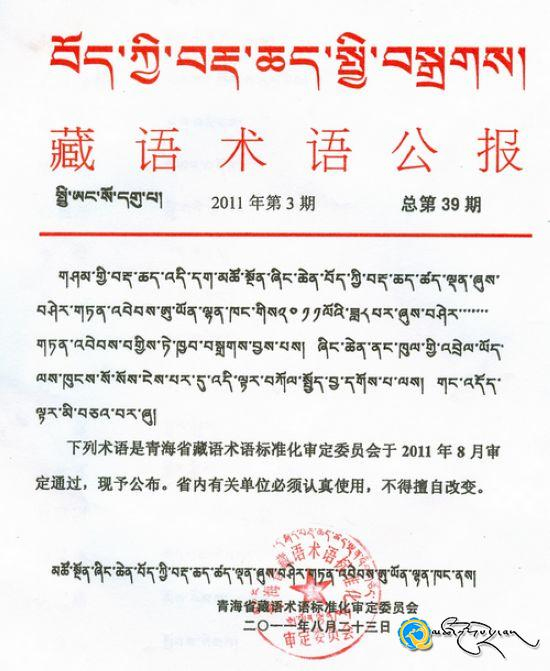 བོད་ཀྱི་བརྡ་ཆད་སྤྱི་བསྒྲགས།
藏语术语公报
སྤྱི་ཨང་སོ་དགུ་པ།
2011 年第 3 期
总第 39 期
གཤམ་གྱི་བརྡ་ཆད་འདི་དག་མཚོ་སྔོན་ཞིང་ཆེན་བོད་ཀྱི་བརྡ་ཆད་ཚད་ལྡན་ཞུས་
བཤེར་གཏན་འབེབས་ཨུ་ཡོན་ལྷན་ཁང་གིས༢༠༡༡ལོའི་ཟླ༨བར་ཞུས་བཤེར་
གཏན་འབེབས་བགྱིས་ཏེ་ཁྱབ་བསྒྲགས་བྱས་པས། ཞིང་ཆེན་ནང་ཁུལ་གྱི་འབྲེལ་ཡོད་
ལས་ཁུངས་སོ་སོས་ངེས་པར་དུ་འདི་ལྟར་བཀོལ་སྤྱོད་བྱ་དགོས་པ་ལས། གང་འདོད་
ལྟར་མི་བཅའ་བར་ཞུ།
下列术语是青海省藏语术语标准化审定委员会于 2011 年 8 月审
定通过，现予公布。省内有关单位必须认真使用，不得擅自改变。
མཚོ་སྔོན་ཞིང་ཆེན་བོད་ཀྱི་བརྡ་ཆད་ཚད་ལྡན་ཞུས་བཤེར་གཏན་འབེབས་ཨུ་ཡོན་ལྷན་ཁང་ནས།
青海省藏语术语标准化审定委员会
二〇一一年八月二十三日
青海省藏语术语标准化
审定委员会